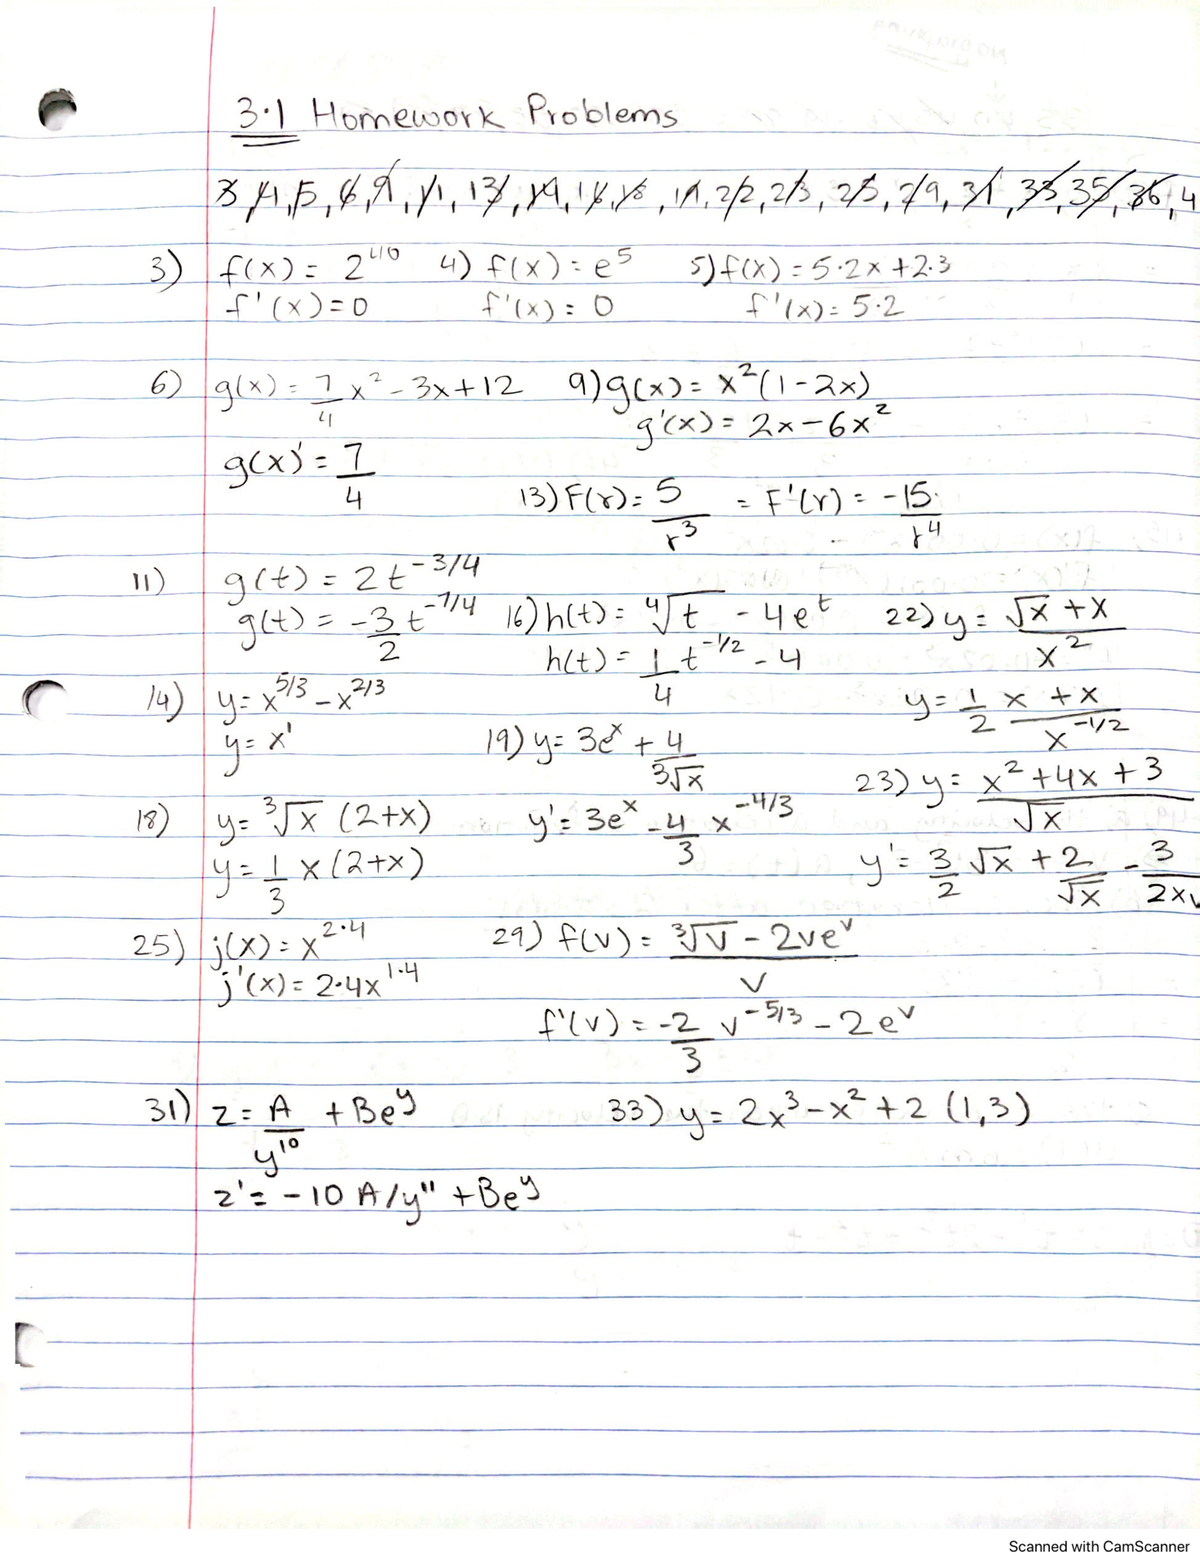 3.1 Homework Problems
3, 4, 5, 6, 9, 11, 13, 14, 16, 18, 19, 22, 23, 25, 29, 31, 33, 35, 36, 4
3) f(x) = 2^40 4) f(x) = e^5 5) f(x) = 5.2x + 2.3
f'(x) = 0 f'(x) = 0 f'(x) = 5.2
6) g(x) = 7/4 x^2 - 3x + 12 9) g(x) = x^2(1 - 2x)
g'(x) = 2x - 6x^2
g(x)' = 7/4
13) F(r) = 5/r^3 = F'(r) = -15/r^4
11) g(t) = 2t^-3/4
g(t) = -3/2 t^-7/4 16) h(t) = ⁴√t - 4e^t 22) y = √x + x / x^2
h(t) = 1/4 t^-1/2 - 4
14) y = x^5/3 - x^2/3 y = 1/2 x + x / x^-1/2
y = x' 19) y = 3e^x + 4/³√x
23) y = x^2 + 4x + 3 / √x
18) y = ³√x (2+x) y' = 3e^x - 4/3 x^-4/3
y = 1/3 x (2+x) y' = 3/2 √x + 2/√x - 3/2x
25) j(x) = x^2.4 29) f(v) = ³√v - 2ve^v / v
j'(x) = 2.4x^1.4
f'(v) = -2/3 v^-5/3 - 2e^v
31) z = A/y^10 + Be^y 33) y = 2x^3 - x^2 + 2 (1,3)
z' = -10 A/y^11 + Be^y
Scanned with CamScanner